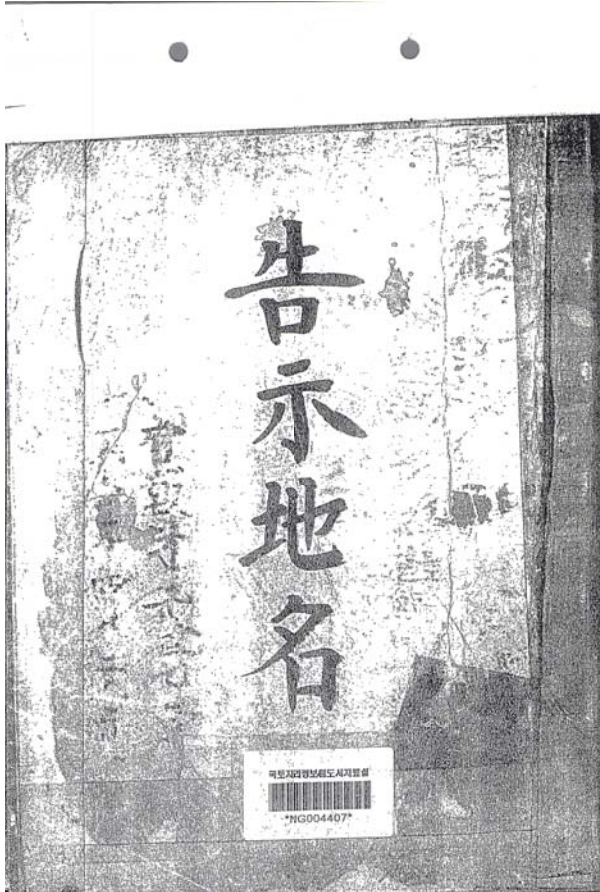 告示地名
국토지리정보원도서자료실
*NG004407*